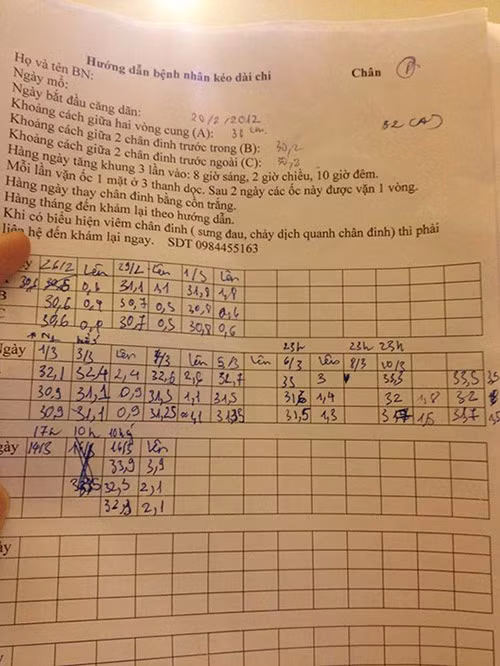 Hướng dẫn bệnh nhân kéo dài chi Chân P
Họ và tên BN:
Ngày mổ:
Ngày bắt đầu căng dãn: 20/2/2012
Khoảng cách giữa hai vòng cung (A): 30 cm 32 (A)
Khoảng cách giữa 2 chân đinh trước trong (B): 30,2
Khoảng cách giữa 2 chân đinh trước ngoài (C): 30,2
Hàng ngày tăng khung 3 lần vào: 8 giờ sáng, 2 giờ chiều, 10 giờ đêm.
Mỗi lần vặn ốc 1 mặt ở 3 thanh dọc. Sau 2 ngày các ốc này được vặn 1 vòng.
Hàng ngày thay chân đinh bằng cồn trắng.
Hàng tháng đến khám lại theo hướng dẫn.
Khi có biểu hiện viêm chân đinh ( sưng đau, chảy dịch quanh chân đinh) thì phải
liên hệ đến khám lại ngay. SDT 0984455163
26/2 Lên 29/2 Lên 1/3 Lên
30,6 31,1 1,1 31,8 1,8
B 30,6 0,4 30,7 0,5 30,8 0,6
C 30,6 30,7 0,5 30,8 0,6
23h 23h 23h
Ngày 1/3 3/3 Lên Lên 5/3 Lên 6/3 Lên 8/3 10/3
32,1 32,4 2,4 32,6 2,6 32,7 33 3 33,5 33,5
30,9 31,1 0,9 31,3 1,1 31,5 31,6 1,4 32 1,8 32
30,9 31,1 0,9 31,25 31,5 1,3 1,5 31,7
17h 10h
Ngày 14/3 16/3 Lên
33,9 3,9
32,5 2,1
2,1